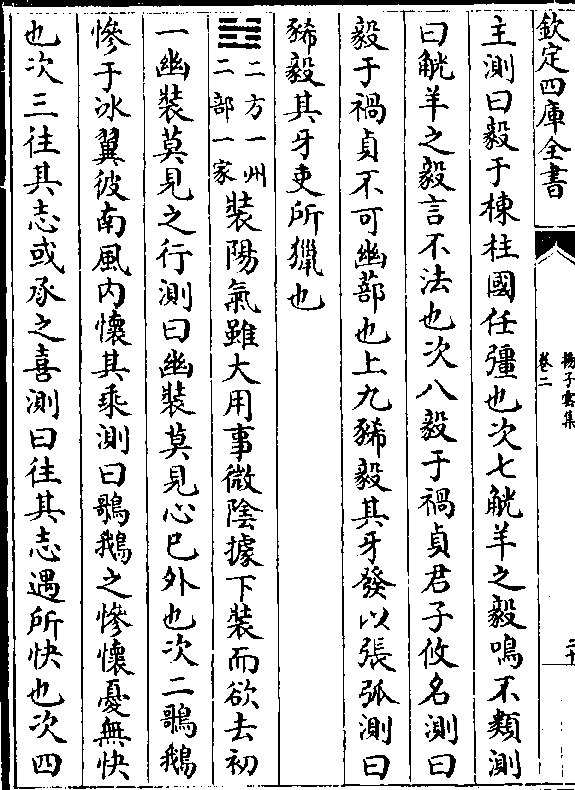 欽定四庫全書
揚子雲集
卷二
二十
主測曰毅于棟柱國任彊也次七觥羊之毅鳴不類測
曰觥羊之毅言不法也次八毅于禍貞君子攸名測曰
毅于禍貞不可幽蔀也上九豨毅其牙發以張弧測曰
豨毅其牙吏所獵也
二方一州二部一家裝陽氣雖大用事微陰據下裝而欲去初
一幽裝莫見之行測曰幽裝莫見心已外也次二鶪鵝
慘于冰翼彼南風內懷其乘測曰鶪鵝之慘懷憂無快
也次三往其志或承之喜測曰往其志遇所快也次四